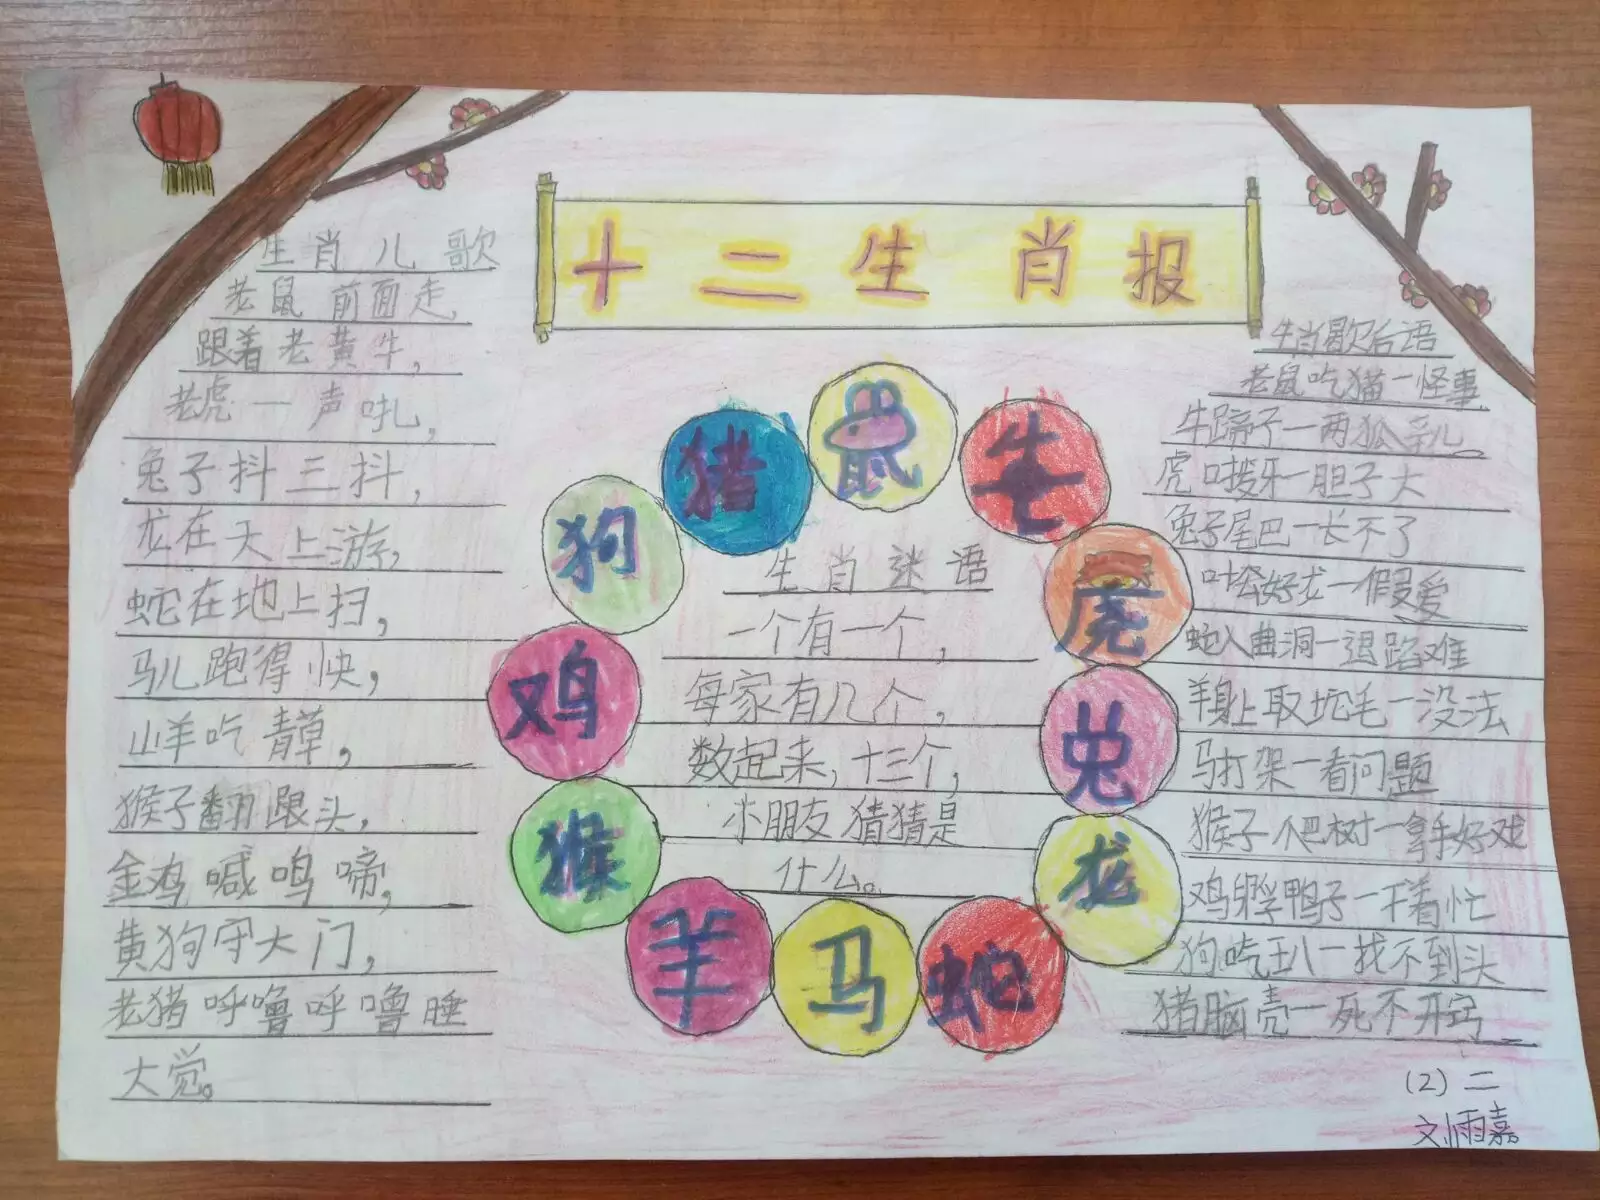 十二生肖报
生肖儿歌
老鼠前面走,
跟着老黄牛,
老虎一声吼,
兔子抖三抖,
龙在天上游,
蛇在地上扫,
马儿跑得快,
山羊吃青草,
猴子翻跟头,
金鸡喊鸣啼,
黄狗守大门,
老猪呼噜呼噜睡
大觉。
鼠
牛
虎
兔
龙
蛇
马
羊
猴
鸡
狗
猪
生肖迷语
一个有一个,
每家有几个,
数起来,十三个,
小朋友猜猜是
什么。
生肖歇后语
老鼠吃猫一怪事
牛蹄子一两瓜亲儿。
虎口拔牙一胆子大
兔子尾巴一长不了
叶公好龙一假爱
蛇入曲洞一退路难
羊身上取驼毛一没法
马打架一看问题
猴子爬树一拿手好戏
鸡孵鸭子一干着忙
狗吃王八一找不到头
猪脑壳一死不开窍
(2)二
刘雨嘉